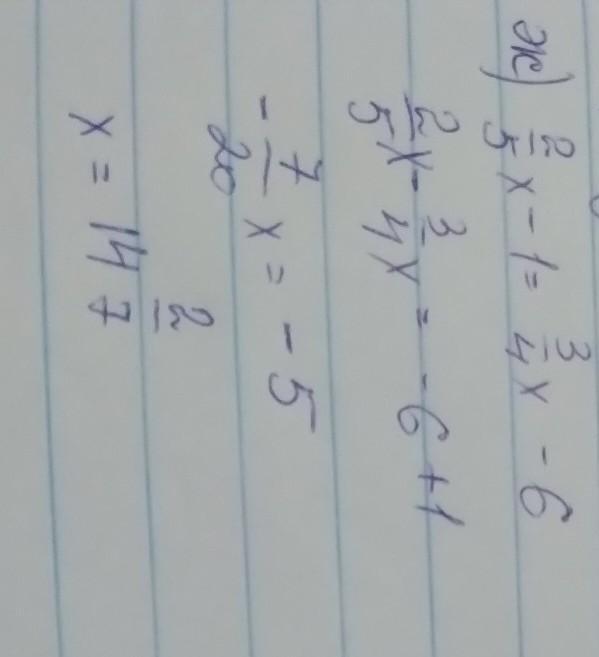 ж) 2/5 x - 1 = 3/4 x - 6
2/5 x - 3/4 x = -6 + 1
- 7/20 x = - 5
x = 14 2/7